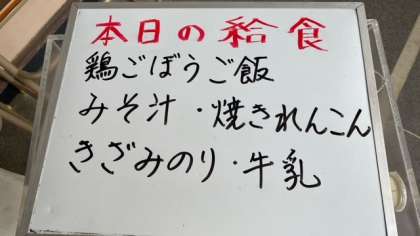 本日の給食
鶏ごぼうご飯
みそ汁・焼きれんこん
きざみのり・牛乳